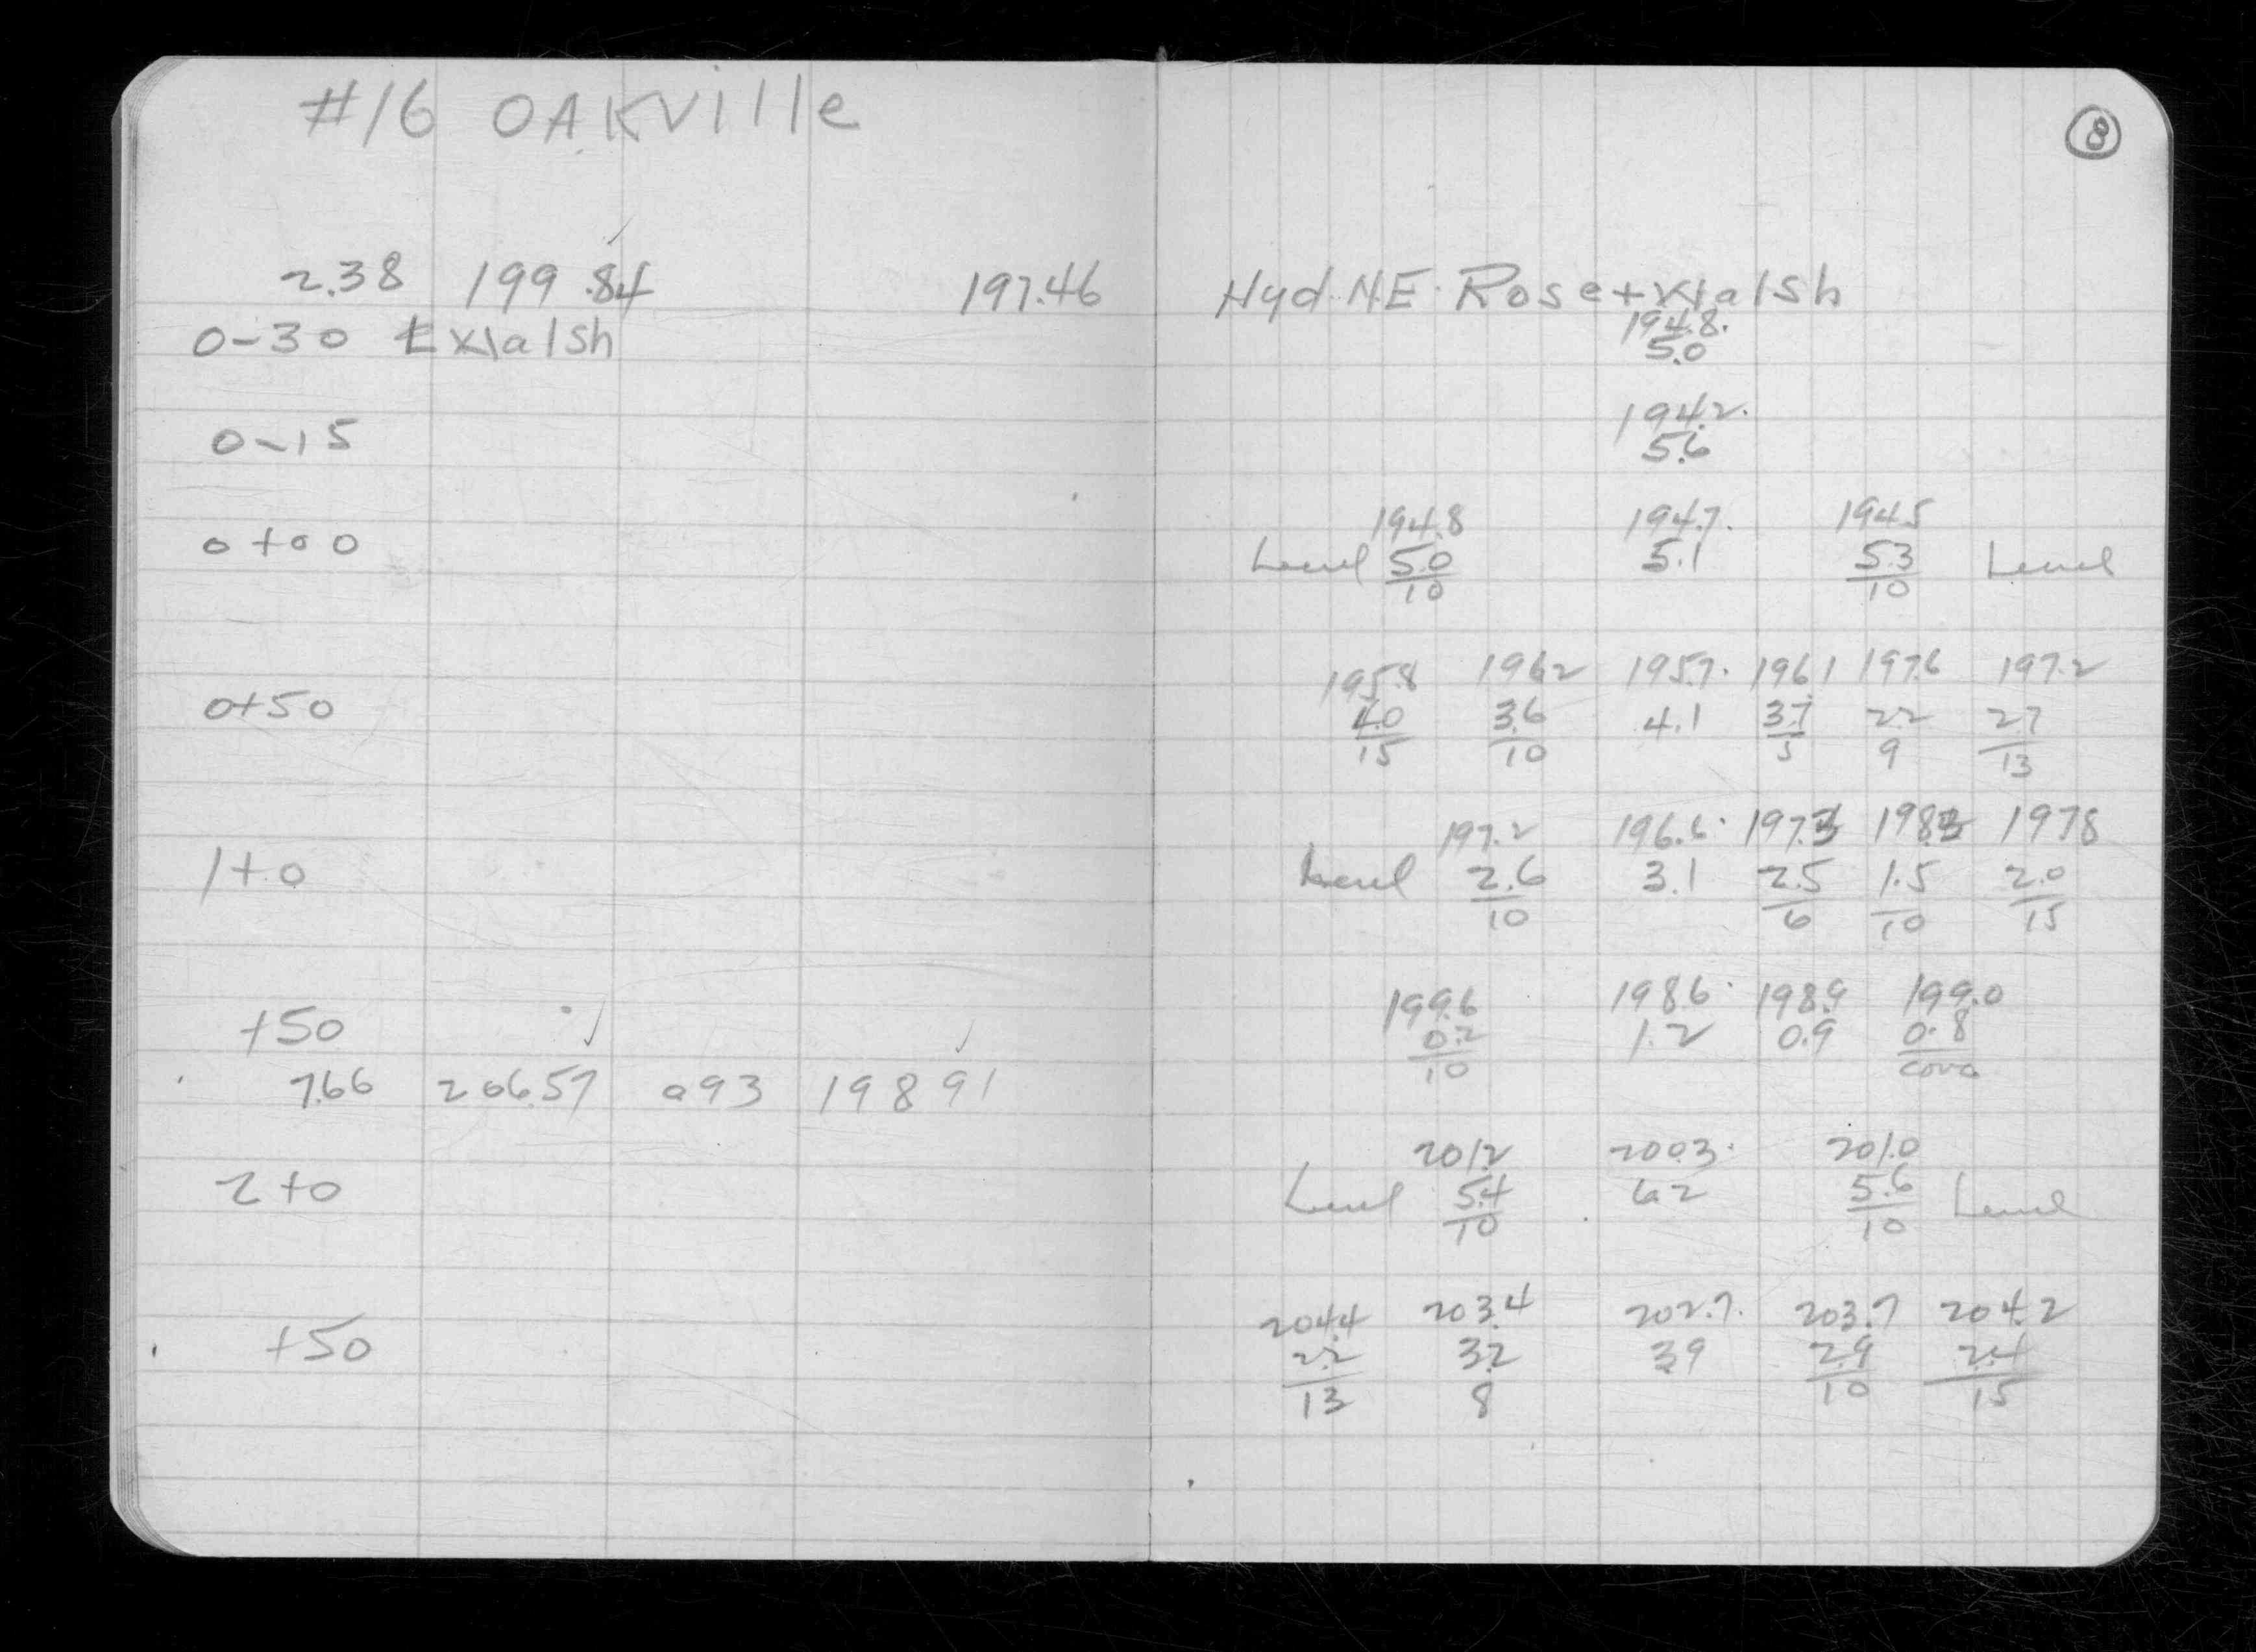 #16 OAKville
8
2.38 199.84 197.46 Hyd. N.E. Rose + Walsh
0-30 ℄ Walsh 194.8.
5.0
194.2.
0-15 5.6
194.8 194.7. 194.5
0+00 Level 5.0 5.1 5.3 Level
10 10
195.8 196.2 195.7. 196.1 197.6 197.2
0+50 4.0 3.6 4.1 3.7 2.2 2.7
15 10 5 9 13
197.2 196.6. 197.3 198.3 197.8
1+0 Level 2.6 3.1 2.5 1.5 2.0
10 6 10 15
199.6 198.6. 198.9 199.0
+50 0.2 1.2 0.9 0.8
10
7.66 206.57 093 198 91
201.2 200.3. 201.0
2+0 Level 5.4 6.2 5.6 Level
10 10
204.4 203.4 202.7. 203.7 204.2
+50 2.2 3.2 3.9 2.9 2.4
13 8 10 15